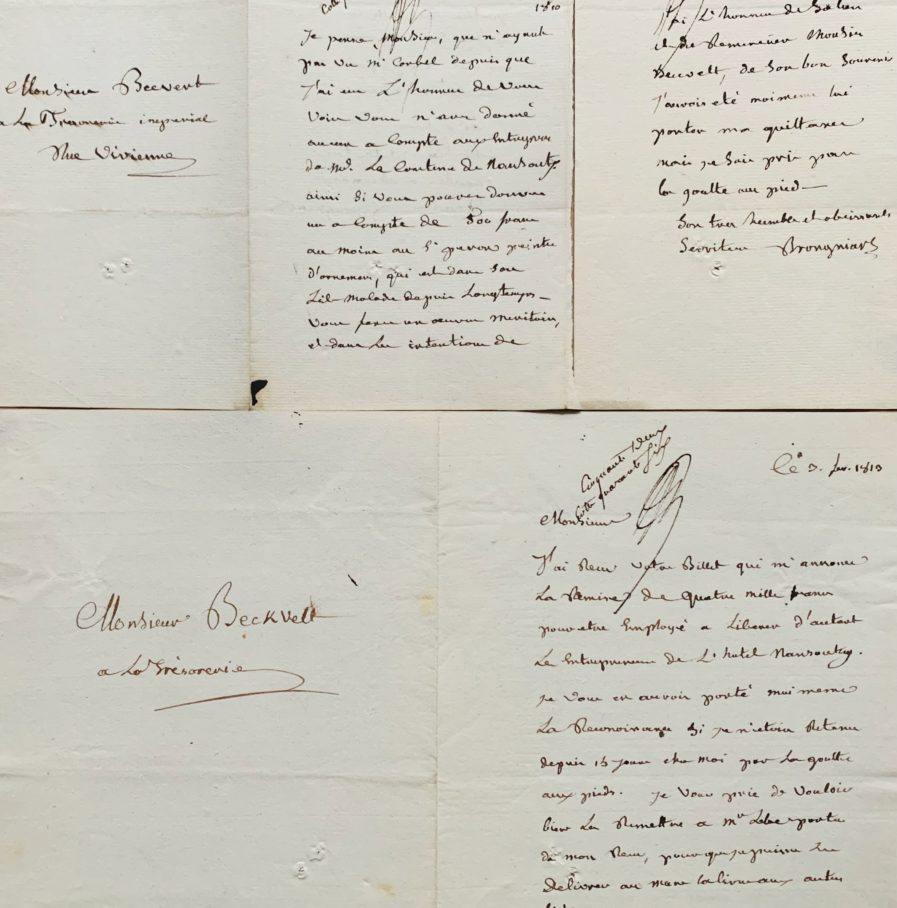 Monsieur Becvert
a La Tresorerie imperial
Rue Vivienne
1810
Je pense, Monsieur, que n'ayant
pas vu Mr Corbel depuis que
J'ai eu L'honneur de vous
voir vous n'avez donné
aucun a Compte aux Entrepren
de Mde. La Comtesse de Nansouty
ainsi Si vous pouvez donner
un a Compte de 500 franc
au moins au Sr peintre
d'ornement, qui est dans son
Lit malade depuis Longtemps_
vous ferez un oeuvre meritoire,
et dans les intentions de
J'ai L'honneur de Saluer
et de Remercier Monsieur
Becvelt, de Son bon Souvenir
J'aurois eté moi meme lui
porter ma quittance
mais je Suis pris par
la goutte au pied_
Son tres humble et obeissant
Serviteur Brongniart
Monsieur Beckvelt
a La Trésorerie
Le 3. 1813
Cinquante Deux
quarante Six
Monsieur
J'ai Reçu Votre Billet qui m'annonce
La Remise de quatre mille francs
pour etre Employé a Liberer d'autant
Le Entrepreneur de L'hotel Nansouty.
Je Vous en aurois porté moi meme
La Reconoissance Si je n'etois Retenu
depuis 15 jours chez moi par La goutte
aux pieds. Je Vous prie de Vouloir
bien Les Remettre a Mr porteur
de mon Recu, pour que je puisse Les
delivrer au aux autres